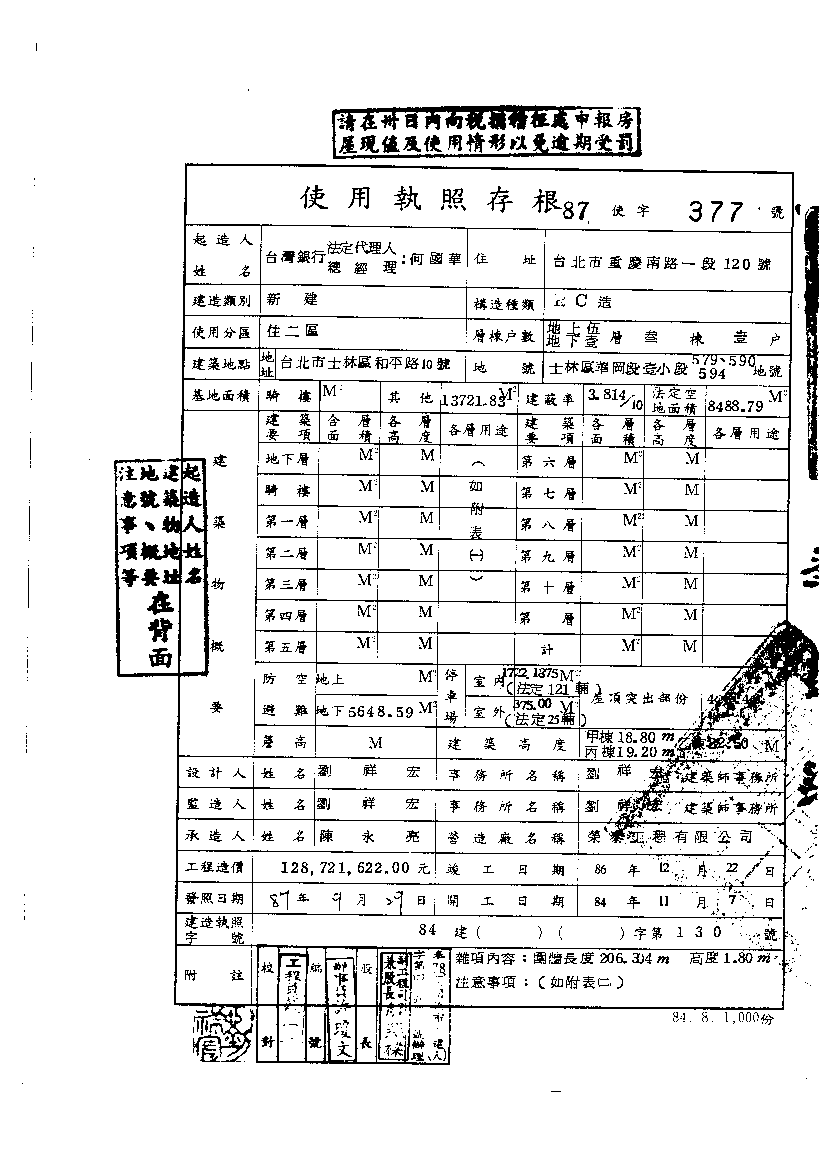 請在卅日內向稅捐稽征處申報房
屋現值及使用情形以免逾期受罰
使用執照存根 87 使字 377 號
起造人姓名 台灣銀行 法定代理人總經理:何國華 住址 台北市重慶南路一段120號
建造類別 新建 構造種類 C造
使用分區 住二區 層棟户數 地上伍地下壹層 叁棟 壹户
建築地點 地址 台北市士林區和平路10號 地號 士林區 岡段壹小段 579、590 594 地號
基地面積 騎樓 M² 其他 13721.85 M² 建蔽率 3.814/10 法定空地面積 8488.79 M²
建築物概要
建築要項 合層面積 各層高度 各層用途 建築要項 各層面積 各層高度 各層用途
地下層 M² M 第六層 M² M
騎樓 M² M 第七層 M² M
第一層 M² M 第八層 M² M
第二層 M² M 第九層 M² M
第三層 M² M 第十層 M² M
第四層 M² M 第 層 M² M
第五層 M² M 計 M² M
(如附表㈠)
防空避難 地上 M² 停車場 室內 1722.1375 M² (法定121輛) 屋項突出部份
地下 5648.59 M² 室外 375.00 M² (法定25輛)
層高 M 建築高度 甲棟18.80m 丙棟19.20m M
設計人 姓名 劉祥宏 事務所名稱 劉祥宏 建築師事務所
監造人 姓名 劉祥宏 事務所名稱 劉祥宏 建築師事務所
承造人 姓名 陳永亮 營造廠名稱 有限公司
工程造價 128,721,622.00 元 竣工日期 86年12月22日
發照日期 87年9月29日 開工日期 84年11月7日
建造執照字號 84 建( )( )字第 130 號
附註 校對 號 股長 雜項內容:圍牆長度206.304m 高度1.80m
注意事項:(如附表㈡)
84.8.1,000份
起造人姓名
建築物地址
地號、概要
注意事項等
在背面